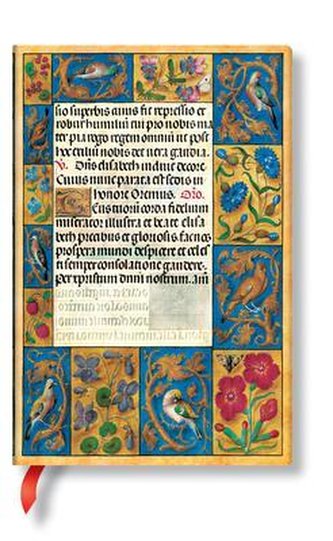 sio superbis auius sic repressio et
robur humiliū cui pro nobis ma
ter pia rego regem omniū ut post
hoc exiliū nobis det vera gaudia.
V. Dn̄s elisabeth induit decore
Cuius munit parata est sedis in
honore Oremus. Oro.
tuorū corda fidelium
miserator illustra et beate elisa
beth precibus et gloriosis facnos
prospera mundi despicere et celes
ti semper consolatione gaudere.
per xpristum dn̄m nostrum. am̄